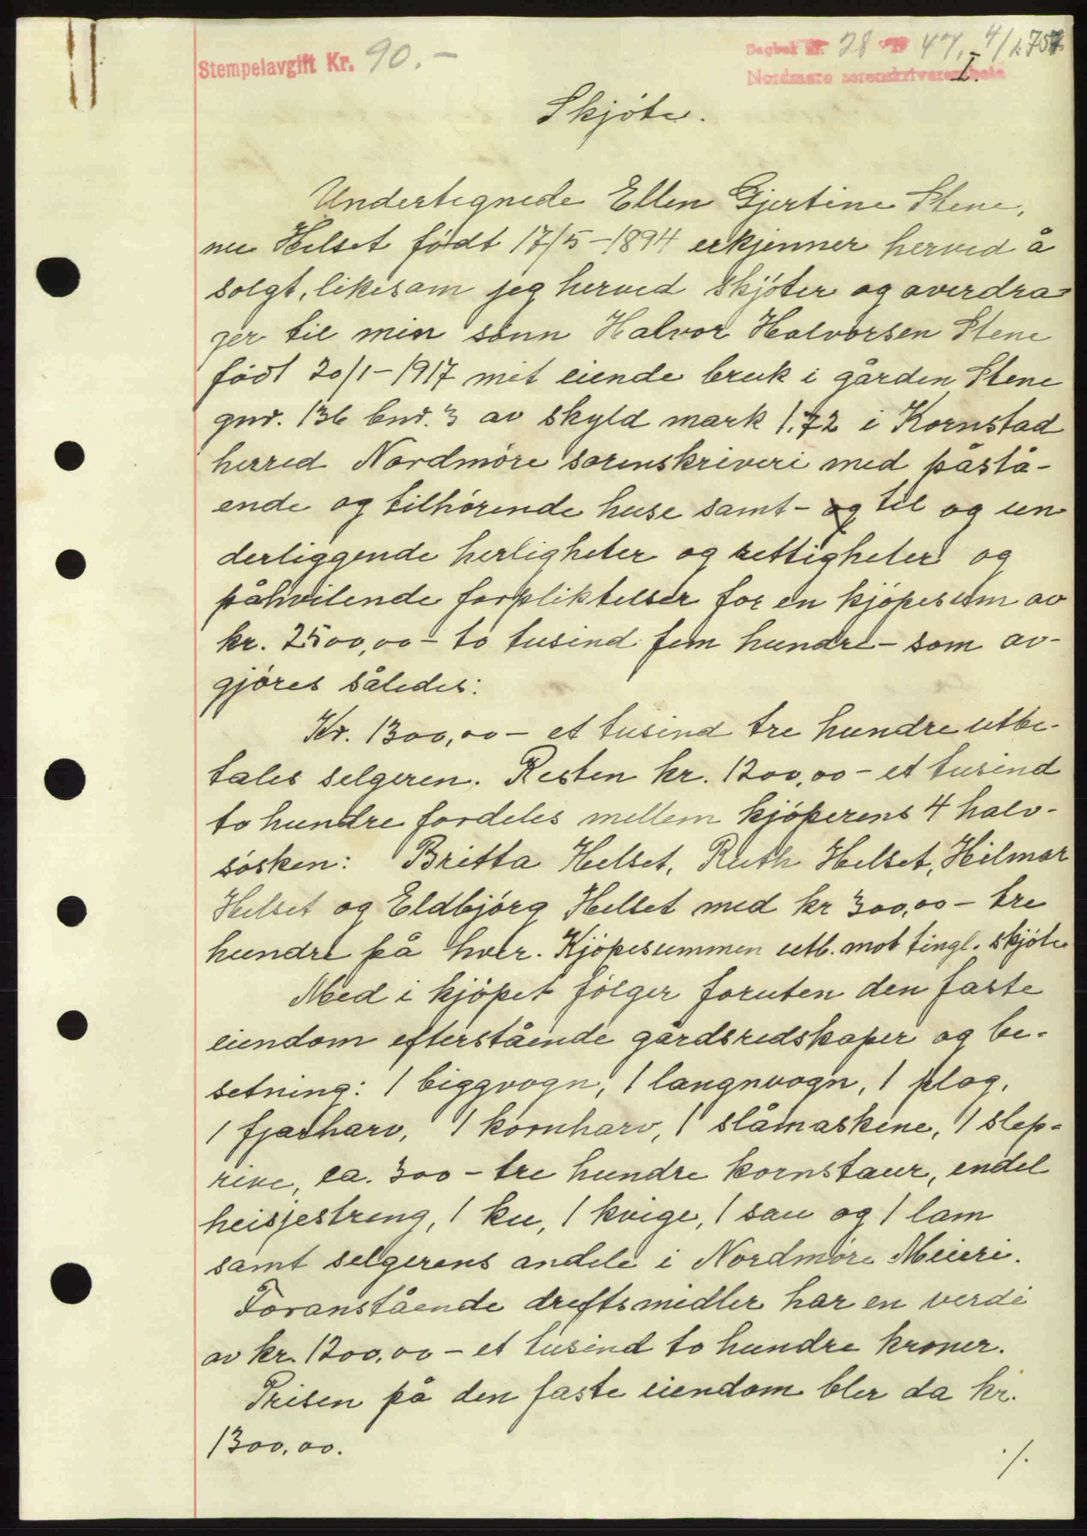 Stempelavgift Kr. 90.-
Dagbok nr. 28 47. 4/1. 757
Nordmøre sorenskriverembete
I.
Skjöte.
Undertegnede Ellen Gjertine Stene,
nu Helset födt 17/5-1894 erkjenner herved å
solgt, likesom jeg herved skjöter og averdra-
ger til min sönn Halvor Halvorsen Stene
födt 20/1-1917 mit eiende bruk i gården Stene
gnr. 136 bnr. 3 av skyld mark 1,72 i Kornstad
herred Nordmöre sorenskriveri med påstå-
ende og tilhörende huse samt - og til og un
derliggende herligheter og rettigheter og
påhvilende forpliktelser for en kjöpesum av
kr. 2500,00 - to tusind fem hundre - som av-
gjöres således:
Kr. 1300,00 - et tusind tre hundre utbe-
tales selgeren. Resten kr. 1200,00 - et tusind
to hundre fordeles mellem kjöperens 4 halv-
sösken: Britta Helset, Ruth Helset, Hilmar
Helset og Eldbjörg Helset med kr 300,00 - tre
hundre på hver. Kjöpesummen utb. mot tingl. skjöte
Med i kjöpet fölger foruten den faste
eiendom efterstående gårdsredskaper og be-
setning: 1 biggvogn, 1 langnvogn, 1 plog,
1 fjærharv, 1 kornharv, 1 slåmaskine, 1 slep-
rive, ca. 300 - tre hundre kornstaur, endel
heisjestreng, 1 ku, 1 kvige, 1 sau og 1 lam
samt selgerens andele i Nordmöre Meieri.
Foranstående dreftsmidler har en verdi
av kr. 1200,00 - et tusind to hundre kroner.
Prisen på den faste eiendom bler da kr.
1300,00.
./.